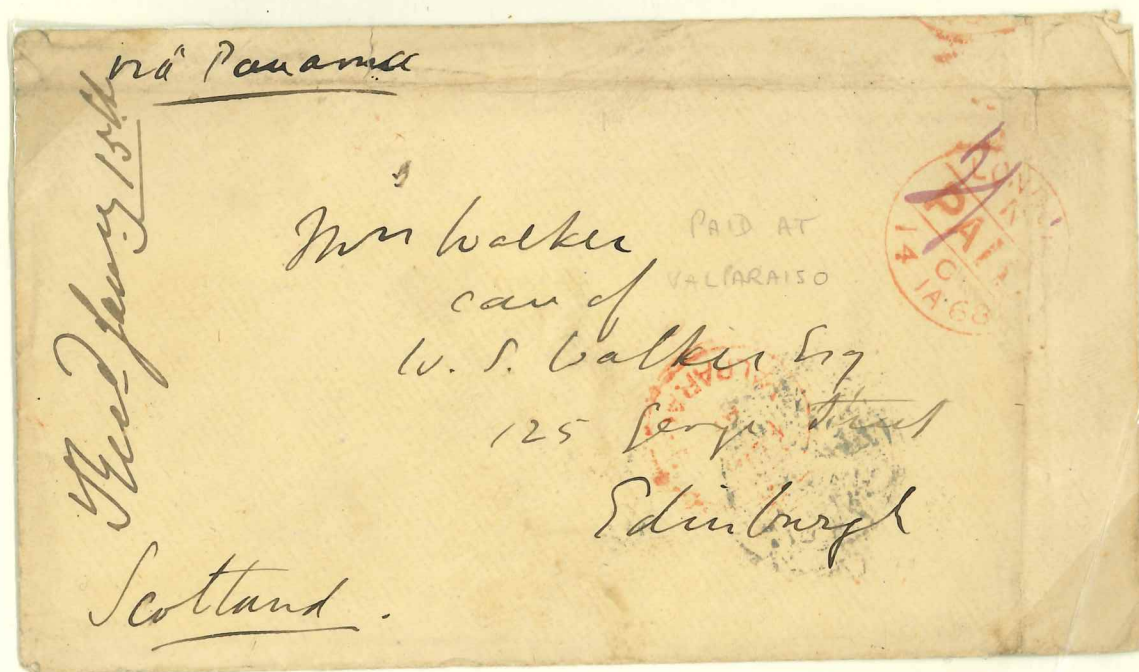 via Panama
Recd January 15th
Mrs Walker
care of
W. S. Walker Esq
125 George Street
Edinburgh
Scotland.
PAID AT
VALPARAISO
LOND
PAID
14 JA 68
VALPARAISO